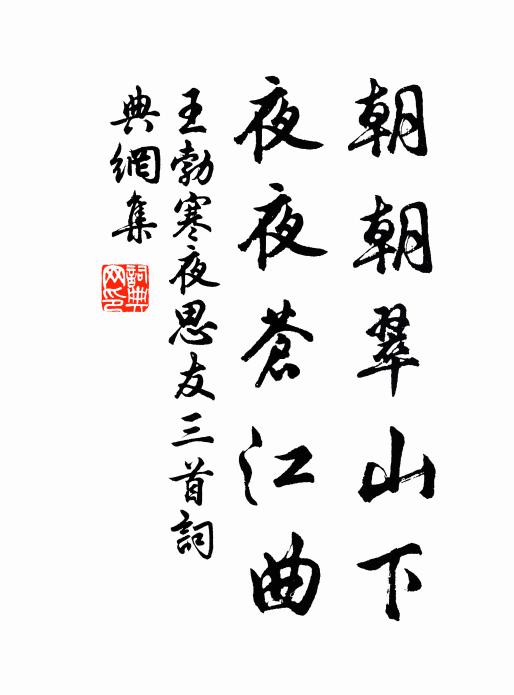 朝朝翠山下
夜夜蒼江曲
王勃寒夜思友三首詞
典網集
詞典
网印